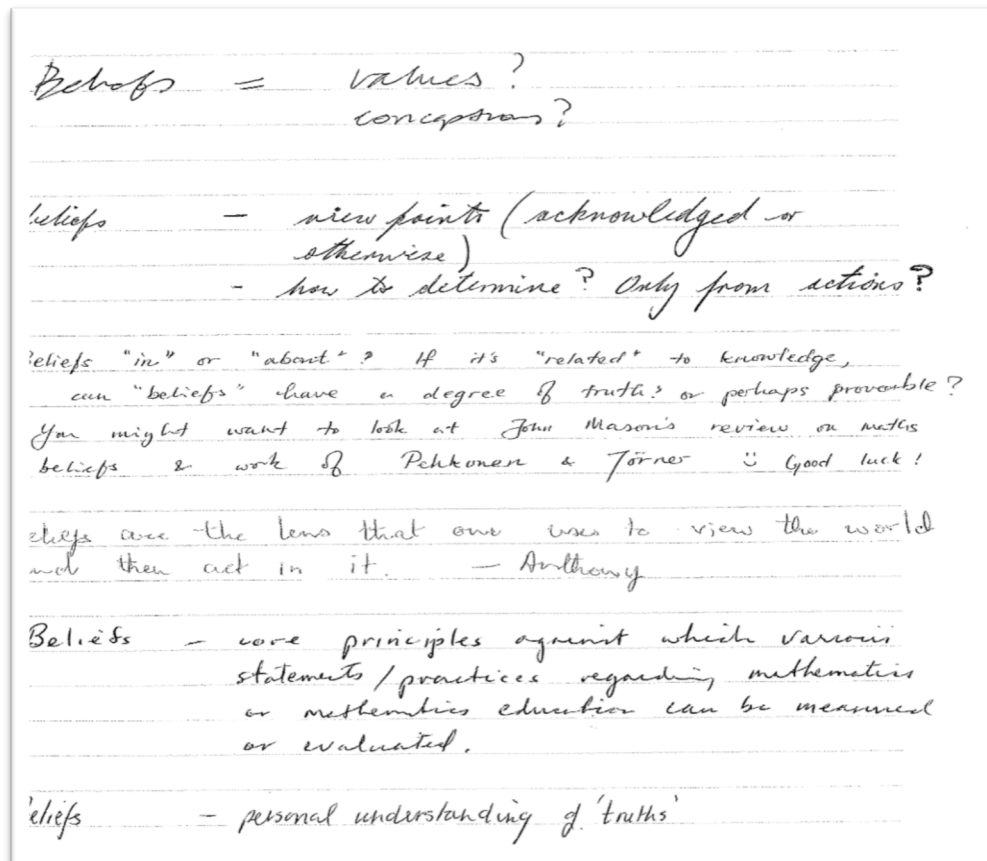 Beliefs = values?
conceptions?
beliefs - view points (acknowledged or
otherwise)
- how to determine? Only from actions?
Beliefs "in" or "about"? If it's "related" to knowledge,
can "beliefs" have a degree of truth? or perhaps provable?
You might want to look at John Mason's review on maths
beliefs & work of Pehkonen & Törner :) Good luck!
Beliefs are the lens that one uses to view the world
and then act in it. - Anthony
Beliefs - core principles against which various
statements/practices regarding mathematics
or mathematics education can be measured
or evaluated.
Beliefs - personal understanding of 'truths'